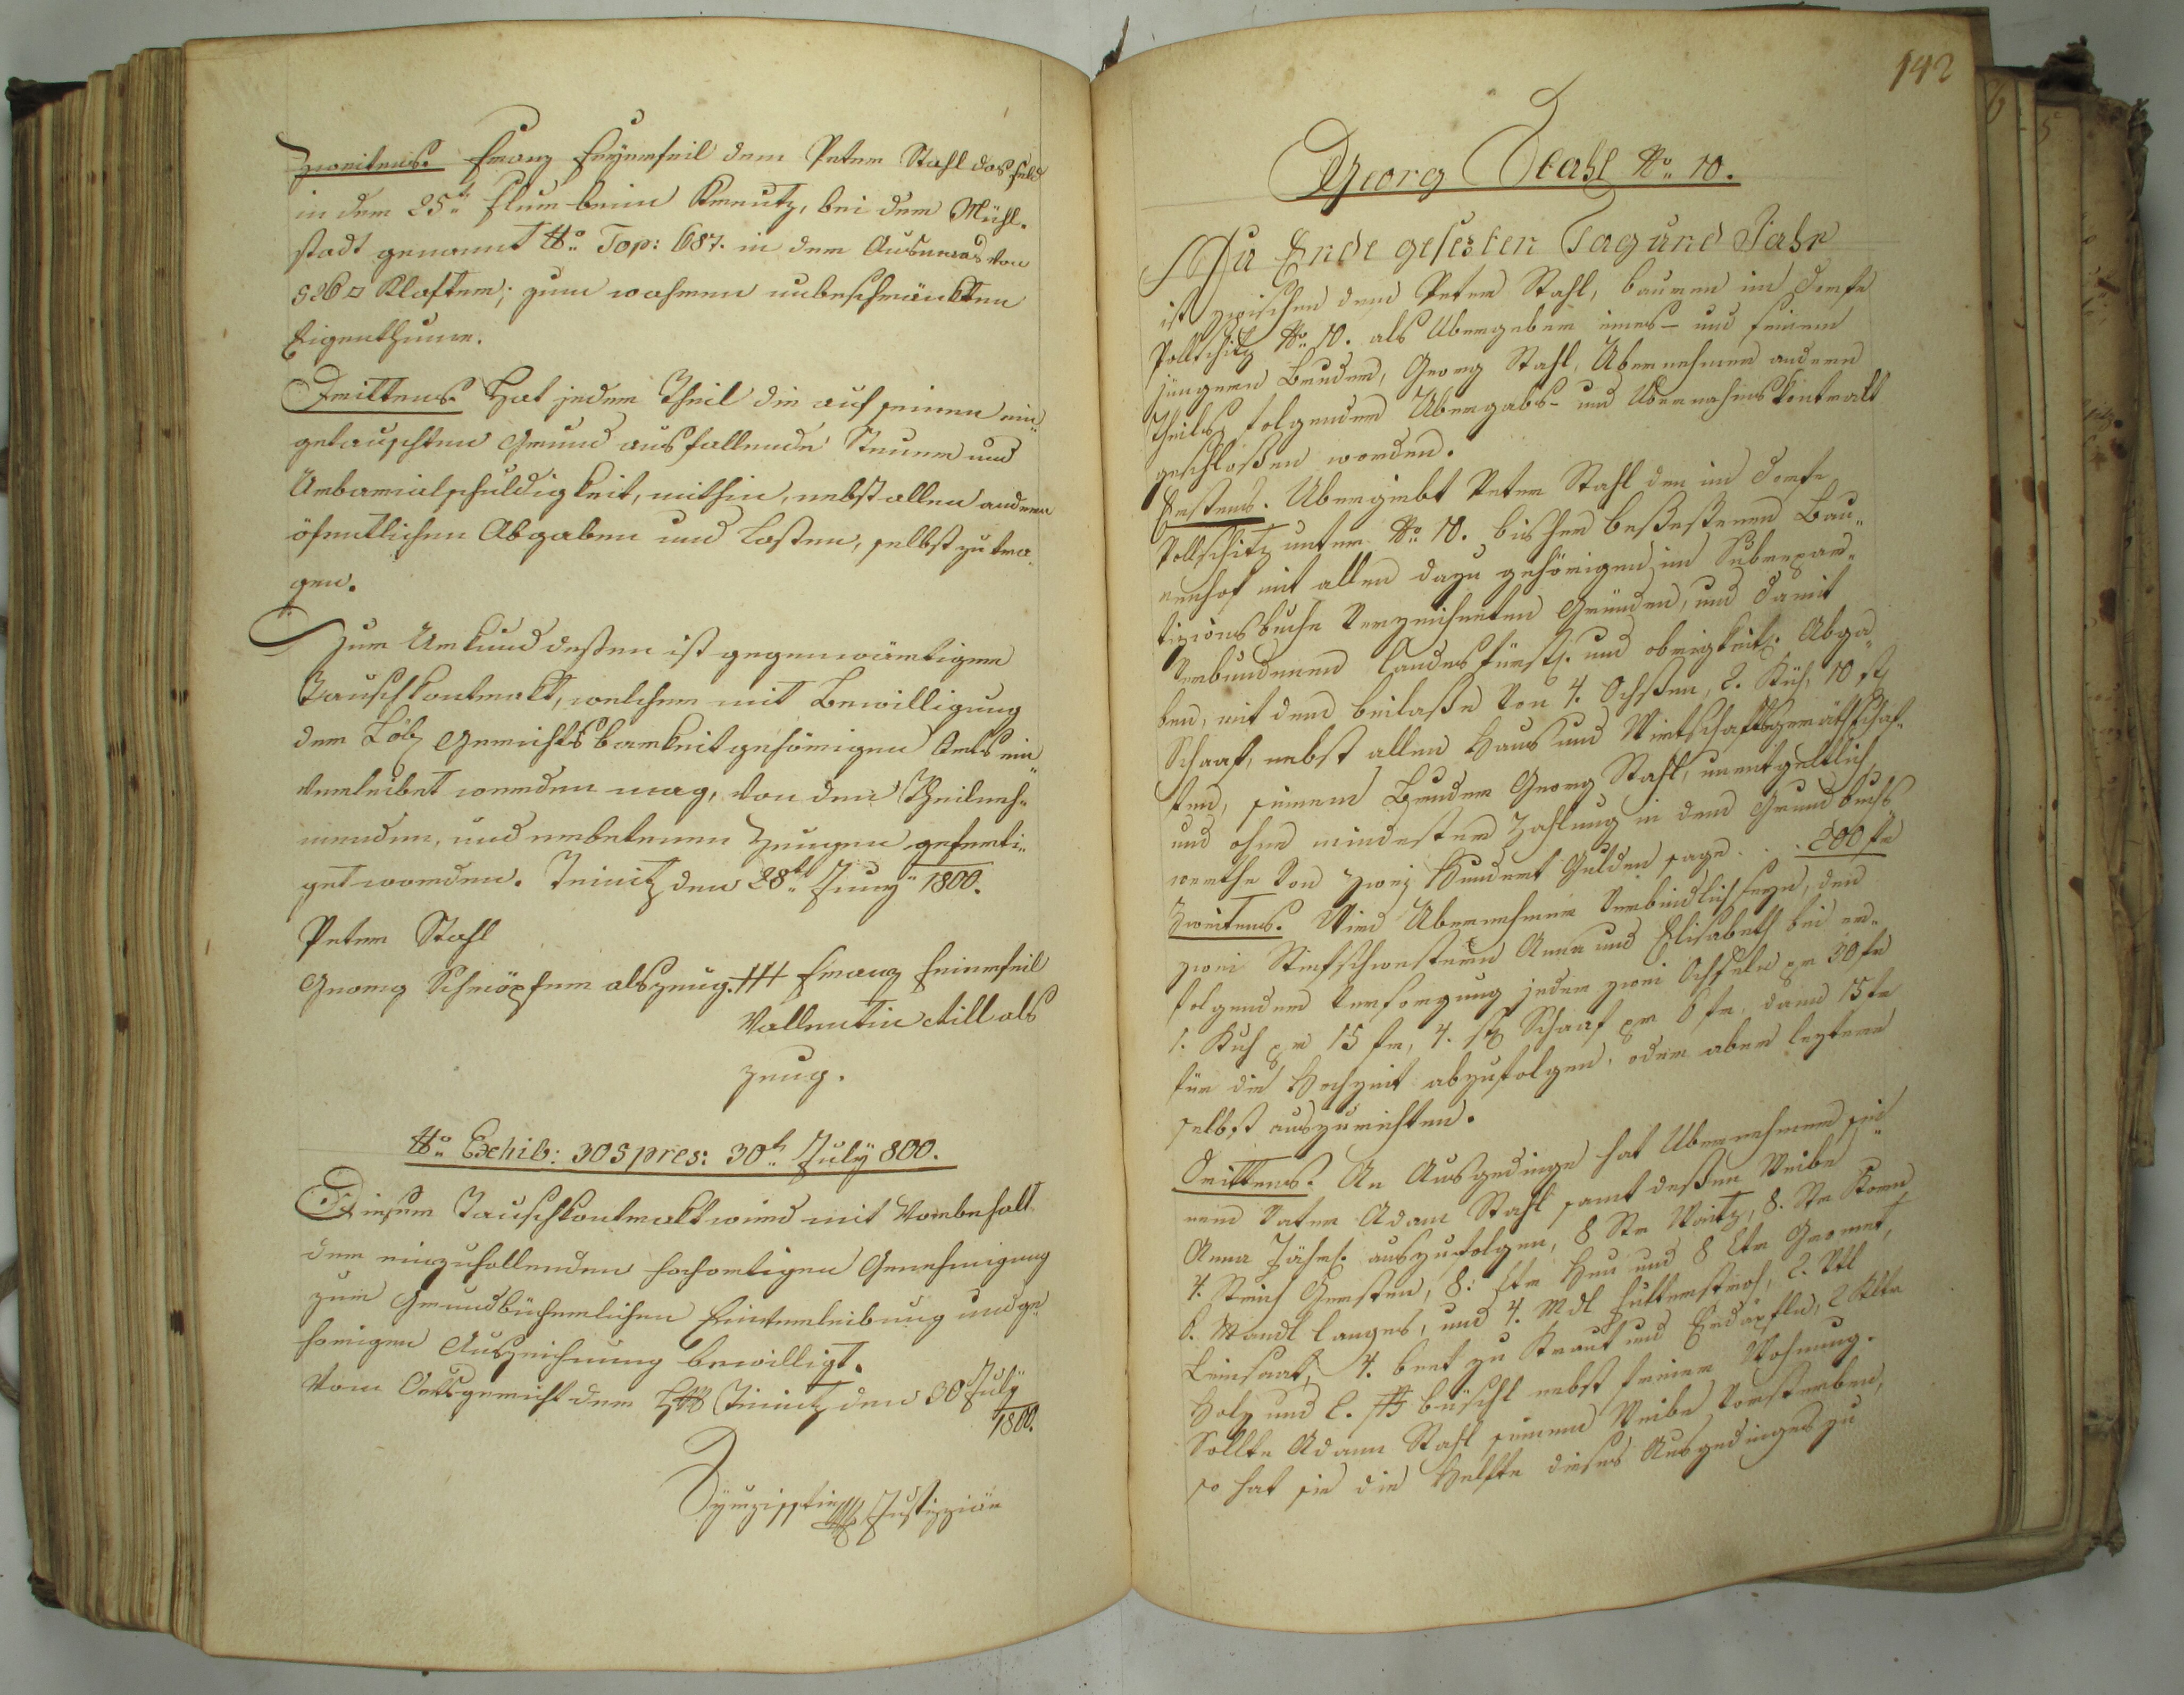 Zweitens. Franz Feyerfeil dem Peter Stahl das Feld
in dem 25t Flur beim Kreutz, bei dem Mühl-
stadt genannt No Top: 687. in dem Ausmas von
526 □ Klaftern; zum wahren unbeschränkten
Eigenthume.
Drittens. Hat jeder Theil die auf seinen ein-
getauschten Grund ausfallende Steuer und
Urbarialschuldigkeit, mithin, nebst allen andern
öfentlichen Abgaben und Lasten, selbst zu tra-
gen.
Zur Urkund deßen ist gegenwärtiger
Tauschkontrakt, welcher mit Bewilligung
der Löb Gerichtsbarkeit gehörigen Orts ein-
verleibet werden mag, von den Theilneh-
menden, und erbetenen Zeugen geferti-
get worden. Teinitz den 28t Juny 1800.
Peter Stahl
Georg Schröpfer als Zeug. +++ Franz Feierfeil
Vallentin Till als
Zeug.
No Exhib: 305 pres: 30t July 800.
Diesem Tauschkontrakt wird mit Vorbehalt
der einzuhollenden hochortigen Genehmigung
zur Grundbücherlichen Einverleibung und ge-
hörigen Auszeichnung bewilligt.
Vom Ortsgericht der Teinitz den 30 July
1800.
Justiziär
142
Georg Stahl No 10.
Zu Ende gesezten Tag und Jahr
ist zwischen dem Peter Stahl, bauern im Dorfe
Pollschitz No 10. als Übergeber eines- und seinem
jüngern Bruder, Georg Stahl, Übernehmer andern
Theils, folgender Übergabs- und Übernahmskontrakt
geschloßen worden.
Erstens. Übergiebt Peter Stahl den im Dorfe
Pollschitz unter No 10. bisher beßeßenen Bau-
ernhof mit allen dazu gehörigen, im Subrepar-
tizionsbuche verzeichneten Gründen, und damit
verbundenen Landesfürstl. und obrigkeitl. Abga-
ben, mit dem beilaße von 4. Ochßen, 2. Küh, 10 st
Schaaf, nebst allen Haus und Wirtschaftsgeräthschaf-
ten, seinem Bruder Georg Stahl, unentgeltlich
und ohne mindester Zahlung in dem Grundbuchs
werthe von zwei Hundert Gulden sage . . . 200 fr
Zweitens. Wird Übernehmer verbindlich seyn, den
zwei Stiefschwestern Anna und Elisabeth bei er-
folgender Versorgung jeder zwei Ochseln pr 30 fr
1. Kuh pr 15 fr, 4. st Schaaf pr 6 fr, dann 15 fr
für die Hochzeit abzufolgen, oder aber leztere
selbst auszurichten.
Drittens. An Ausgedinge hat Übernehmer sei-
nem Vater Adam Stahl samt deßen Weibe
Anna jährl. auszufolgen, 8 Str Waitz, 8. Str Korn
4. Strich Gersten, 8. Ctr Heu und 8 Ctr Gromet,
6. Mandl langes, und 4. Mdl Futterstroh, 2. Vtl
Leinsaat, 4. beet zu Kraut und Erdäpfln, 2 Klftr
Holz und 2. büschl nebst freier Wohnung.
Sollte Adam Stahl seinem Weibe vorsterben,
so hat sie die Helfte dieses Ausgedinges zu